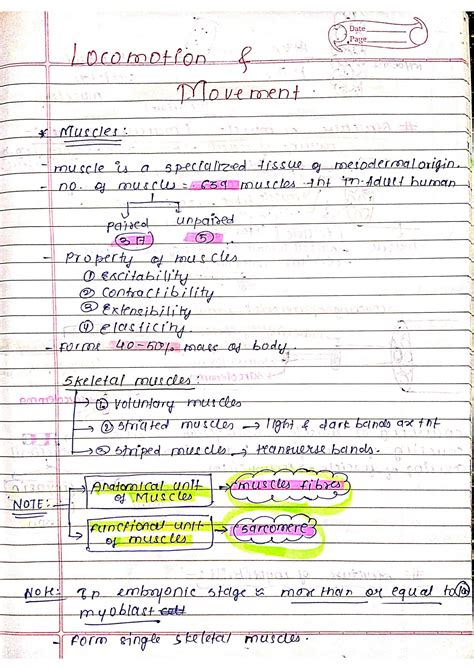 Date
Page
Locomotion &
Movement.
* Muscles:
- muscle is a specialized tissue of mesodermal origin.
- no. of muscle = 639 muscles tnt in Adult human
Paired unpaired
37 5
- Property of muscles
① Excitability
② Contractibility
③ Extensibility
④ elasticity
- Forms 40-50% mass of body.
Skeletal muscles:
→ ① voluntary muscles
→ ② Striated muscles → light & dark bands ax tnt
→ ③ Striped muscles → transverse bands.
NOTE: → Anatomical unit of Muscles → muscles fibres
→ Functional unit of muscles → Sarcomere
Note: In embryonic stage & more than or equal to
myoblast
- Form single skeletal muscles.